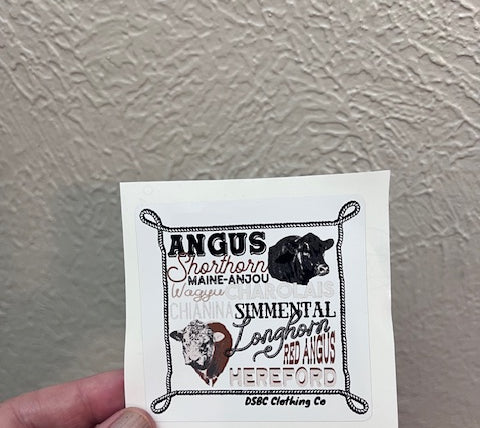 ANGUS
Shorthorn
MAINE-ANJOU
Wagyu CHAROLAIS
CHIANINA SIMMENTAL
Longhorn
RED ANGUS
HEREFORD
DSBC Clothing Co